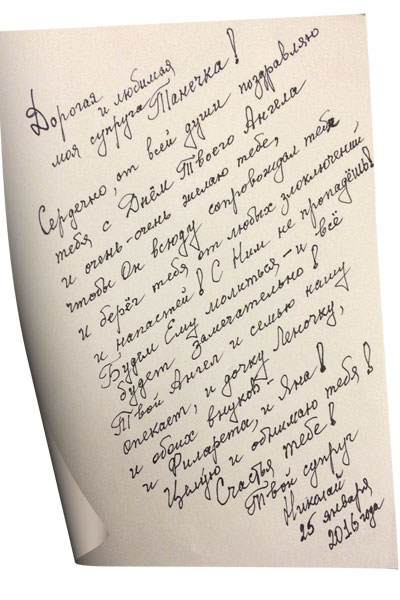 Дорогая
и любимая
моя супруга Танечка!
Сердечно, от всей души поздравляю
тебя с Днём Твоего Ангела
и очень-очень желаю тебе,
чтобы Он всюду сопровождал тебя
и берёг тебя от любых злоключений
и напастей! С Ним не пропадёшь!
Будем Ему молиться - и всё
будет Замечательно!
Твой Ангел и семью нашу
опекает, и дочку Леночку,
и обоих внуков -
и Филарета, и Яна!
Целую и обнимаю тебя!
Счастья тебе!
Твой супруг
Николай
25 января
2016 года